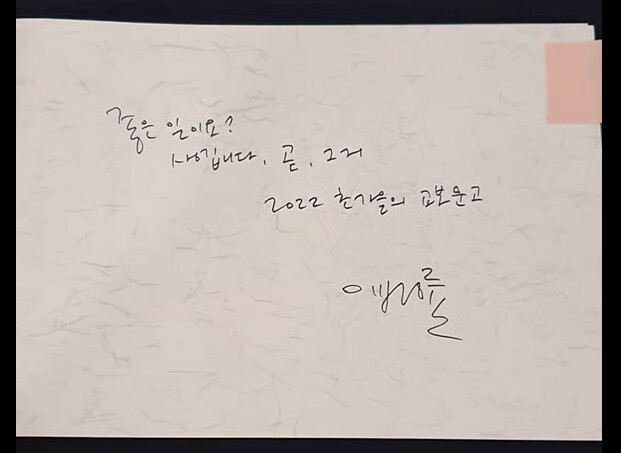 좋은 일이요?
생깁니다, 곧, 그거
2022 초가을의 교보문고